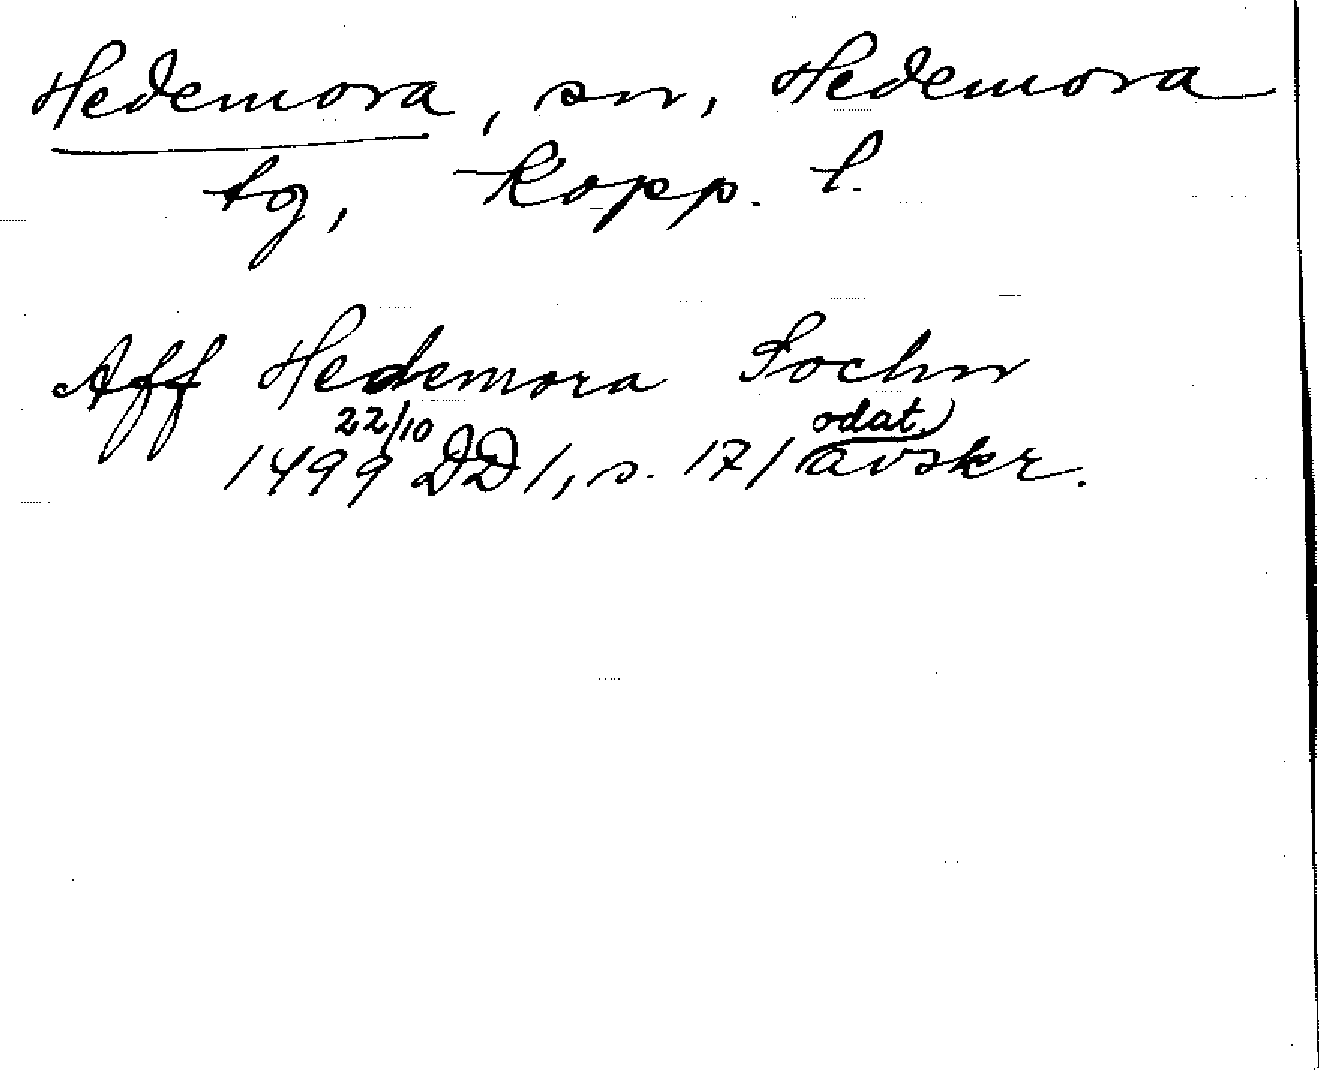 Hedemora, sn, Hedemora
tg, Kopp. l.
Aff Hedemora Sochn
22/10 odat.
1499 DD1, s. 17/avskr.